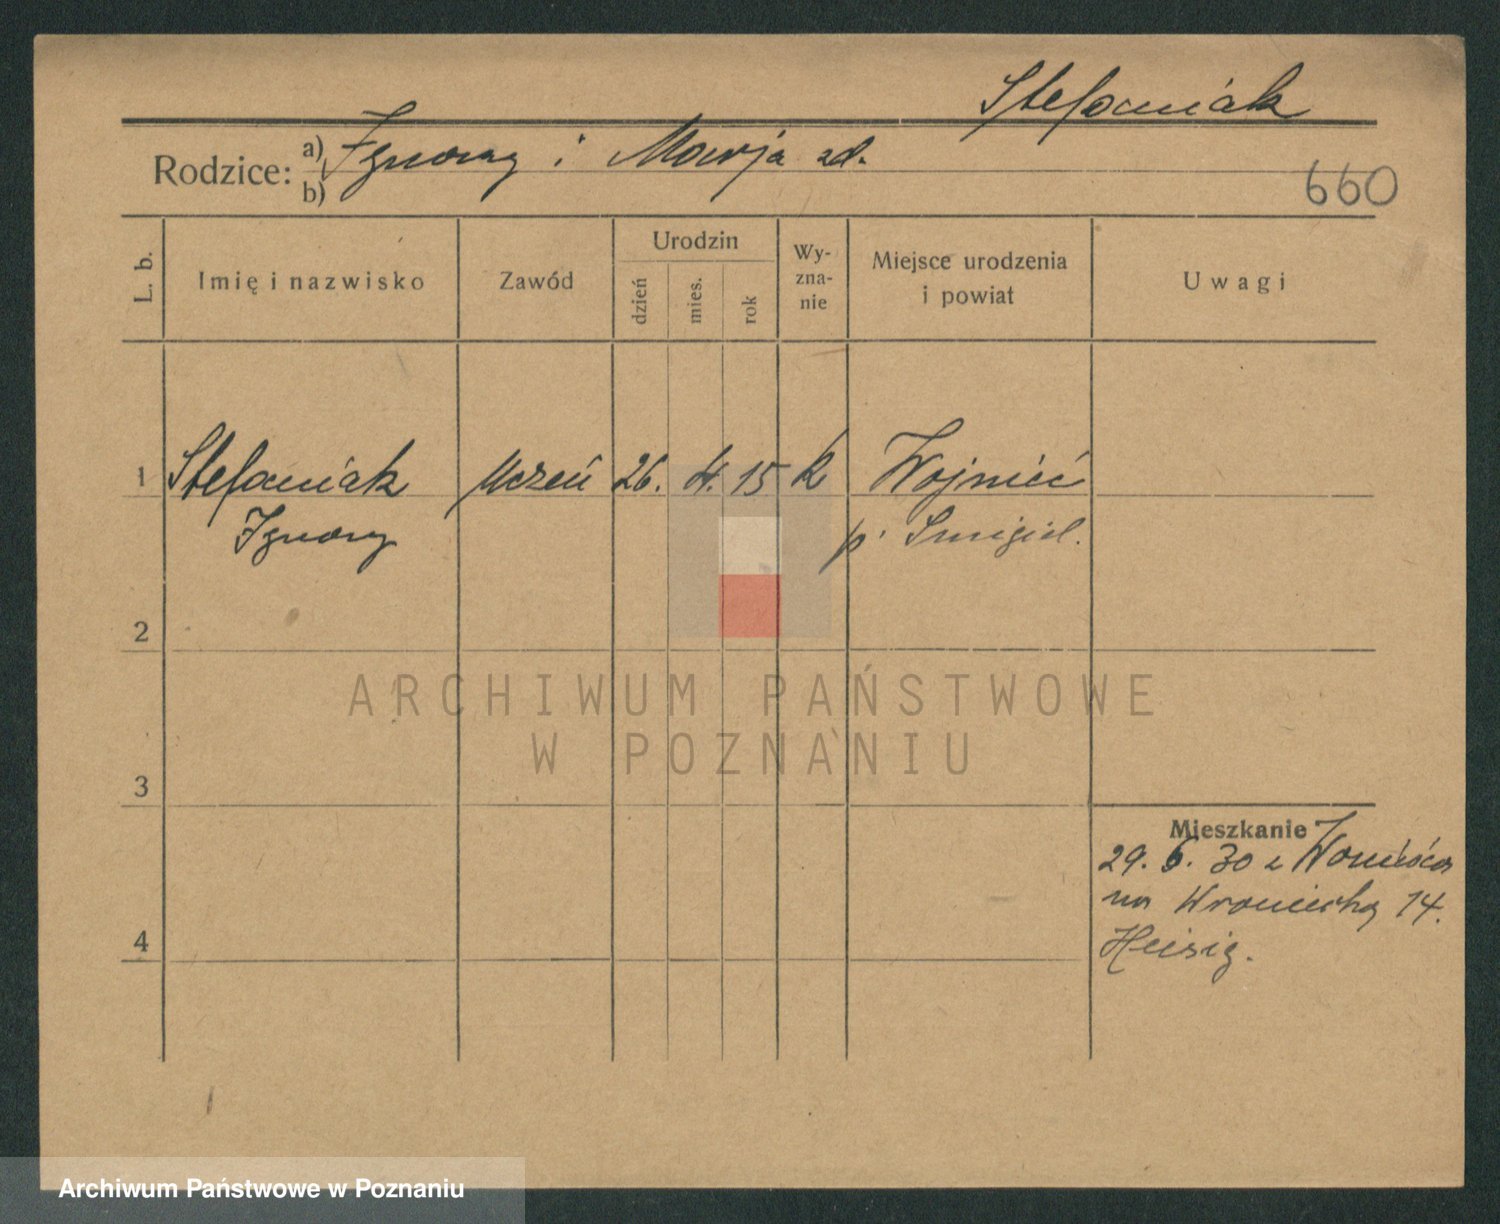 Stefaniak
Rodzice: a) Ignacy i Marja zd.
b)
660
L. b.
Imię i nazwisko
Zawód
Urodzin
dzień
mies.
rok
Wy-
zna-
nie
Miejsce urodzenia
i powiat
Uwagi
1 Stefaniak uczeń 26. 4. 15 k Wojnieć
Ignacy p. Smigiel.
2
ARCHIWUM PAŃSTWOWE
W POZNANIU
3
Mieszkanie
29. 6. 30 z
na Wroniecką 14.
Heisig.
4
Archiwum Państwowe w Poznaniu